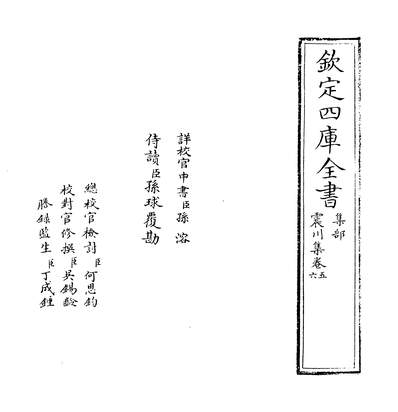 欽定四庫全書
集部
震川集卷五六
詳校官中書臣孫溶
侍讀臣孫球覆勘
總校官檢討臣何思鈞
校對官修撰臣吳錫齡
謄錄監生臣丁成鍾